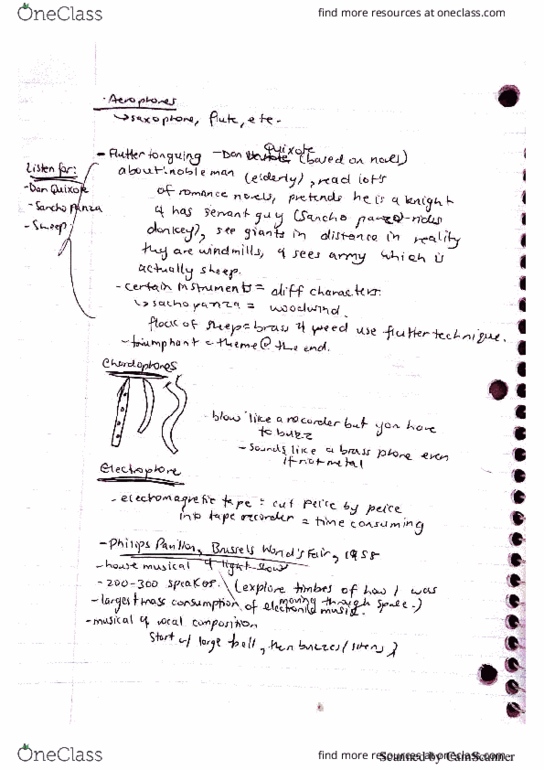 OneClass
find more resources at oneclass.com
- Aerophones
↳ saxophone, flute, etc.
- Flutter tonguing - Don Quixote (based on novel)
Listen for:
- Don Quixote
- Sancho Panza
- Sheep
about nobleman (elderly), read lots
of romance novels, pretends he is a knight
& has servant guy (Sancho panza - rides
donkey), see giants in distance in reality
they are windmills, & sees army which is
actually sheep.
- certain instruments = diff characters.
↳ sachopanza = woodwind.
flock of sheep = brass & weed use flutter technique.
- triumphant = theme @ the end.
Chordophones
- blow like a recorder but you have
to buzz
- sounds like a brass phone even
if not metal
Electrophone
- electromagnetic tape : cut peice by peice
into tape recorder = time consuming
- Philips Pavilion, Brussels World's Fair, 1958
- house musical & light show
- 200-300 speakers. (explore timbes of how I was
moving through space.)
- largest mass consumption of electronic music.
- musical & vocal composition
Start w/ large bell, then buzzes (sirens)
Scanned by CamScanner
OneClass
find more resources at oneclass.com